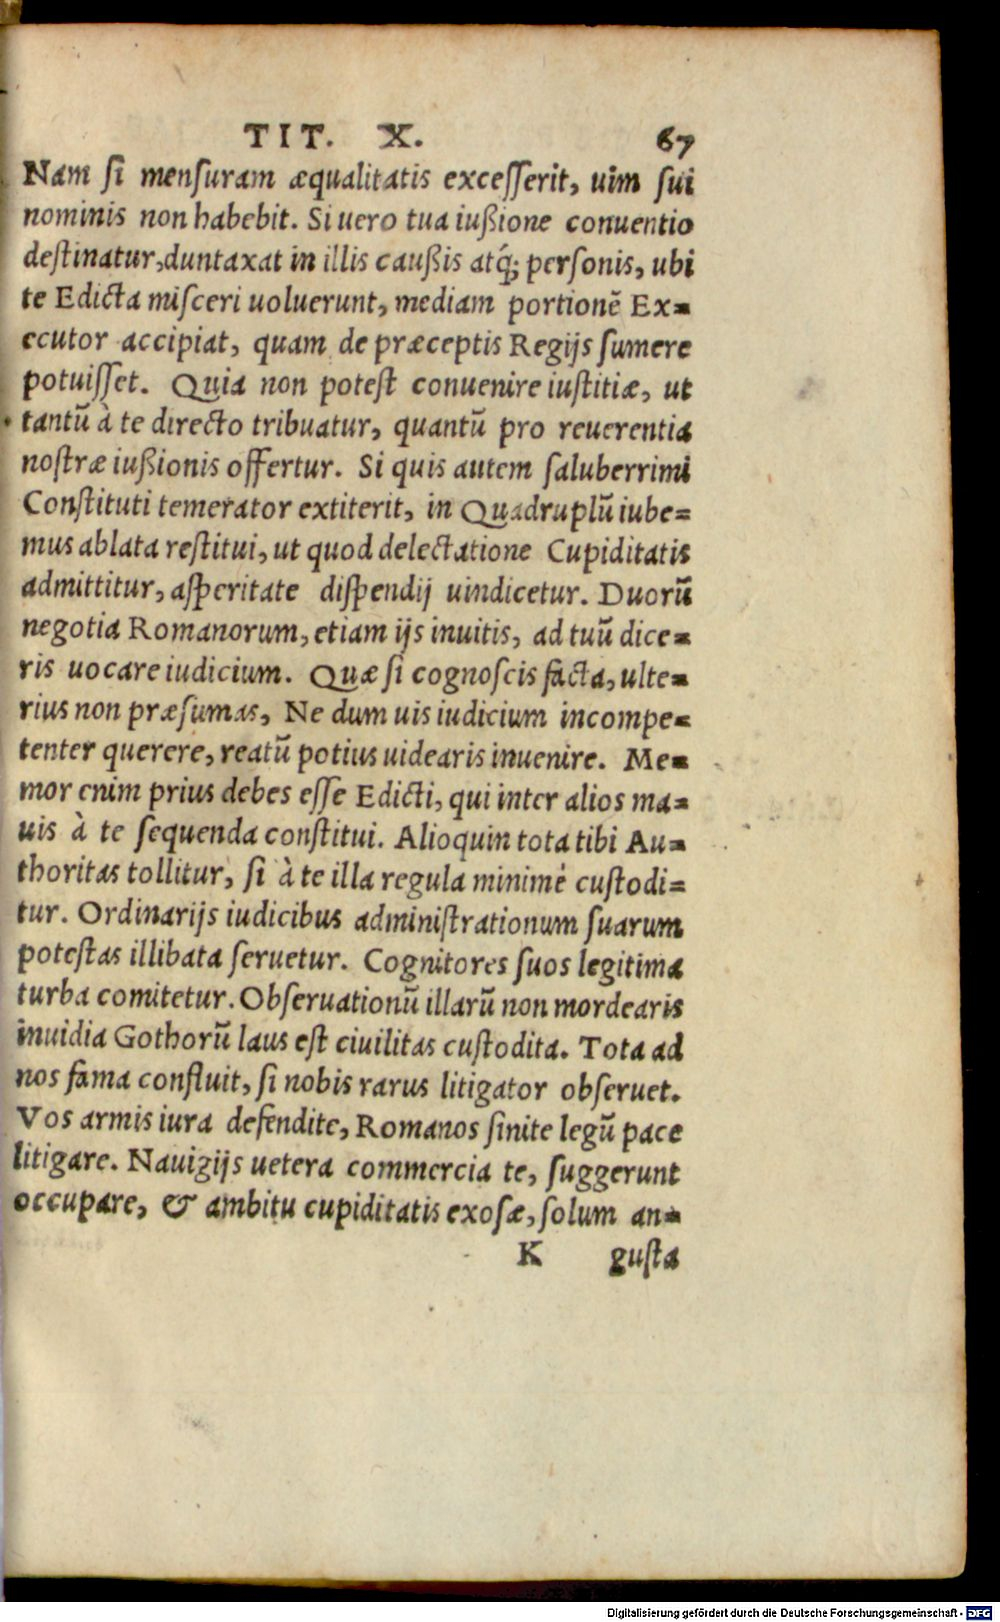 TIT. X. 67
Nam si mensuram æqualitatis excesserit, uim sui
nominis non habebit. Si uero tua iußione conuentio
destinatur, duntaxat in illis caußis atq́; personis, ubi
te Edicta misceri uoluerunt, mediam portionē Ex=
ecutor accipiat, quam de præceptis Regijs sumere
potuisset. Quia non potest conuenire iustitiæ, ut
tantū à te directo tribuatur, quantū pro reuerentia
nostræ iußionis offertur. Si quis autem saluberrimi
Constituti temerator extiterit, in Quadruplū iube=
mus ablata restitui, ut quod delectatione Cupiditatis
admittitur, asperitate dispendij uindicetur. Duorū
negotia Romanorum, etiam ijs inuitis, ad tuū dice=
ris uocare iudicium. Quæ si cognoscis facta, ulte=
rius non præsumas, Ne dum uis iudicium incompe=
tenter querere, reatū potius uidearis inuenire. Me=
mor enim prius debes esse Edicti, qui inter alios ma=
uis à te sequenda constitui. Alioquin tota tibi Au=
thoritas tollitur, si à te illa regula minimè custodi=
tur. Ordinarijs iudicibus administrationum suarum
potestas illibata seruetur. Cognitores suos legitima
turba comitetur. Obseruationū illarū non mordearis
inuidia Gothorū laus est ciuilitas custodita. Tota ad
nos fama confluit, si nobis rarus litigator obseruet.
Vos armis iura defendite, Romanos sinite legū pace
litigare. Nauigijs uetera commercia te, suggerunt
occupare, & ambitu cupiditatis exosæ, solum an=
K gusta
Digitalisierung gefördert durch die Deutsche Forschungsgemeinschaft - DFG